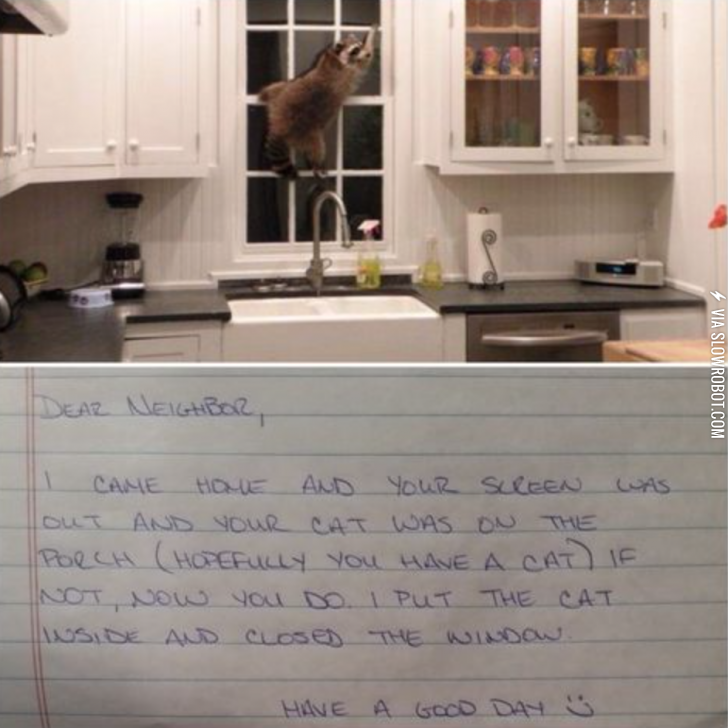 DEAR NEIGHBOR,
I CAME HOME AND YOUR SCREEN WAS
OUT AND YOUR CAT WAS ON THE
PORCH (HOPEFULLY YOU HAVE A CAT) IF
NOT, NOW YOU DO. I PUT THE CAT
INSIDE AND CLOSED THE WINDOW.
HAVE A GOOD DAY
VIA SLOWROBOT.COM